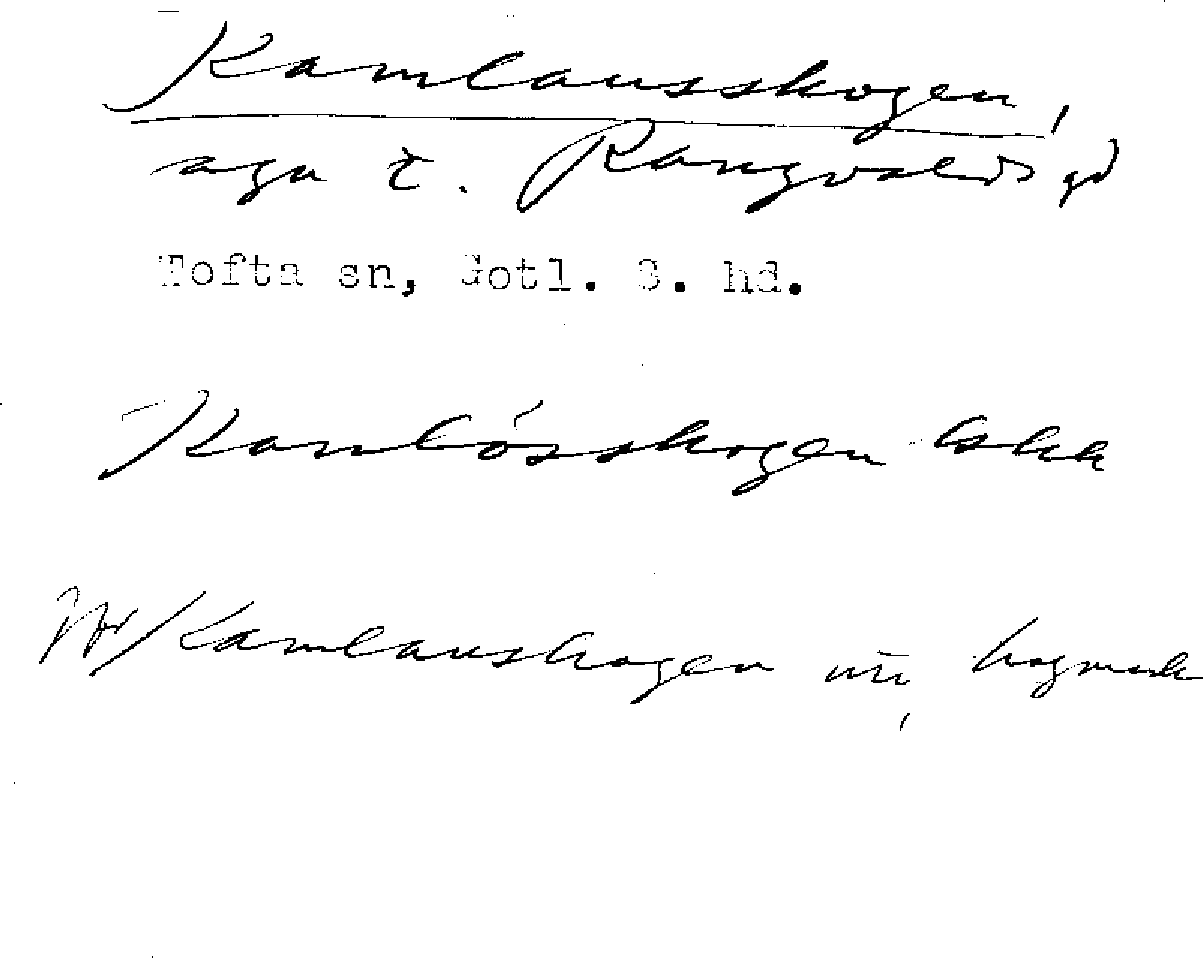 Kamlausskogen,
äga t. Rangvalds gd
Tofta sn, Gotl. S. hd.
Kamlósskogen Eskk
Kamlauskogen